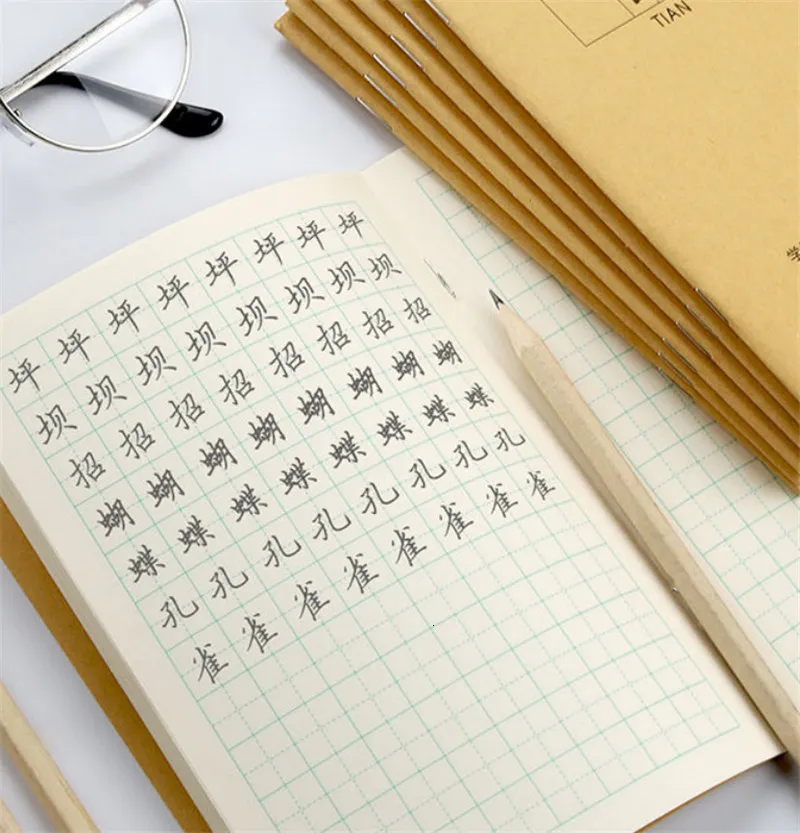 TIAN
学
坪坪坪坪坪坪坪坪
坝坝坝坝坝坝坝坝
招招招招招招招招
蝴蝴蝴蝴蝴蝴蝴蝴
蝶蝶蝶蝶蝶蝶蝶蝶
孔孔孔孔孔孔孔孔
雀雀雀雀雀雀雀雀